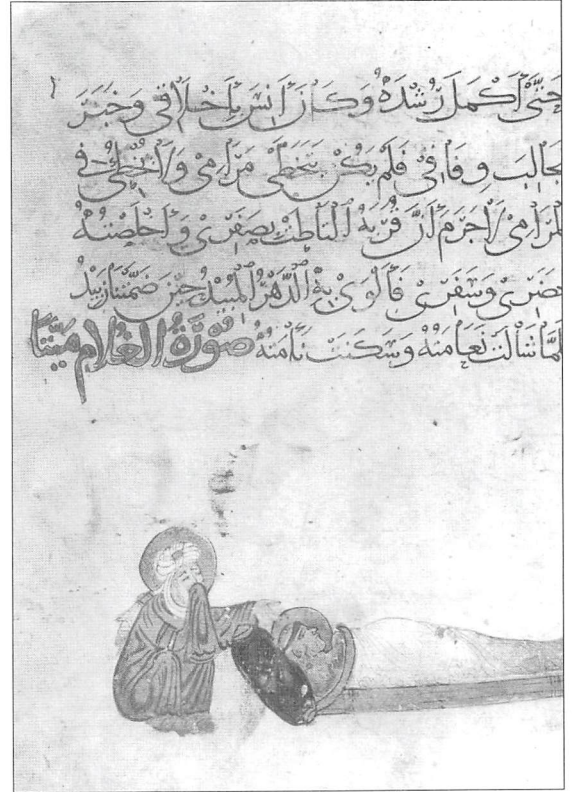 حَتَّى أَكْمَلَ رُشْدَهُ وَكَانَ أَنِسَ بِأَخْلَاقِي وَخَبَرَ
مَجَالِبَ وِفَاقِي فَلَمْ يَكُنْ يَتَخَطَّى مَرَامِي وَلَا يُخْطِئُ فِي
المَرَامِي لَا جَرَمَ أَنَّ قُرْبَهُ الْتَاطَتْ بِصَفَرِي وَأَخْلَصْتُهُ
لِحَضَرِي وَسَفَرِي فَأَلْوَى بِهِ الدَّهْرُ المُبِيدُ حِينَ ضَمَّتْنَا زَبِيدُ
فَلَمَّا شَالَتْ نَعَامَتُهُ وَسَكَنَتْ نَأْمَتُهُ صُورَةُ الغُلَامِ مَيِّتًا